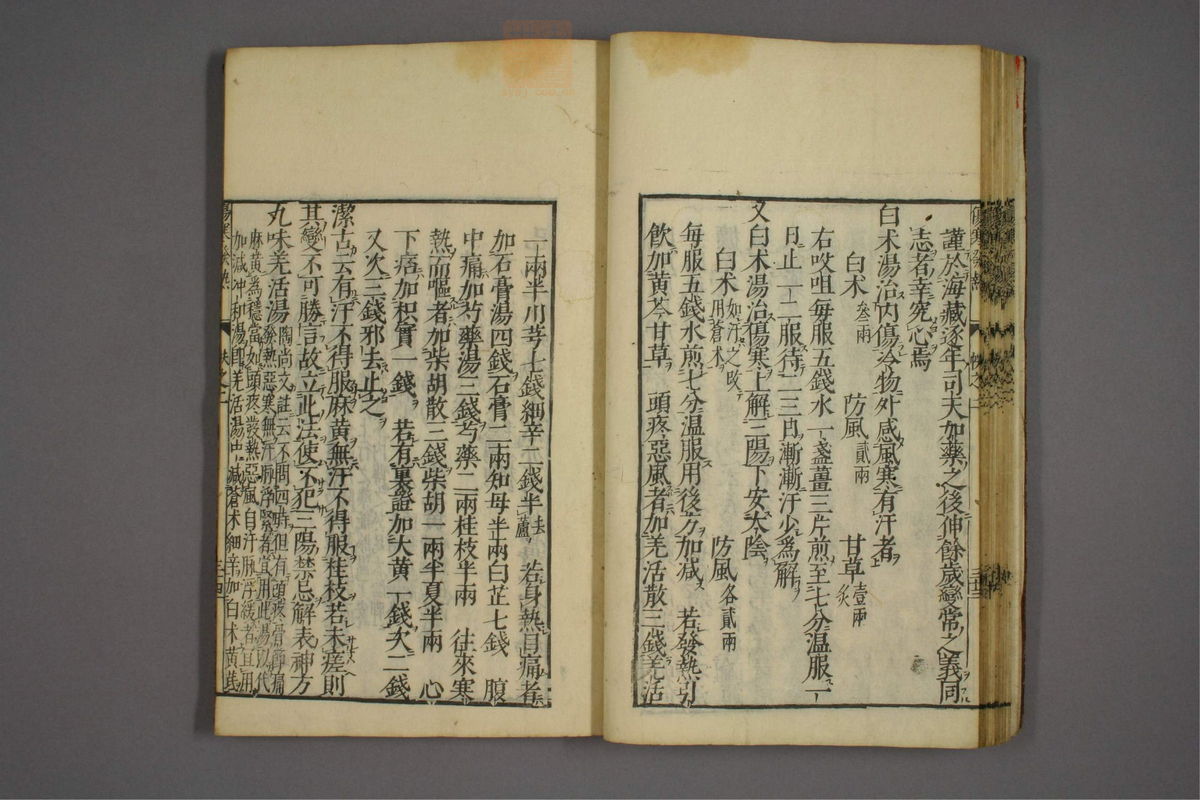 謹於海藏逐年司天加藥之後伸餘歲變常之義同
志者幸究心焉
白术湯治內傷冷物外感風寒有汗者
白术叁兩 防風貳兩 甘草壹兩炙
右㕮咀每服五錢水一盞薑三片煎至七分溫服一
日止一二服待二三日漸漸汗少爲解
又白术湯治傷寒上解三陽下安太陰
白术如汗之改用蒼术 防風各貳兩
每服五錢水煎七分溫服用後方加减 若發熱引
飲加黃芩甘草 頭疼惡風者加羌活散三錢羌活
一兩半川芎七錢細辛二錢半去蘆 若身熱目痛者
加石膏湯四錢石膏二兩知母半兩白芷七錢 腹
中痛加芍藥湯三錢芍藥二兩桂枝半兩 往來寒
熱而嘔者加柴胡散三錢柴胡一兩半夏半兩 心
下痞加枳實一錢 若有裏證加大黃一錢次二錢
又次三錢邪去止之
潔古云有汗不得服麻黃無汗不得服桂枝若未瘥則
其變不可勝言故立此法使不犯三陽禁忌解表神方
九味羌活湯陶尚文註云不問四時但有頭疼骨節痛
發熱惡寒無汗脉浮緊者宜用此湯以代
麻黃爲穩當如頭疼發熱惡風自汗脉浮緩者宜用
加減冲和湯即羌活湯中減蒼术細辛加白术黃茋